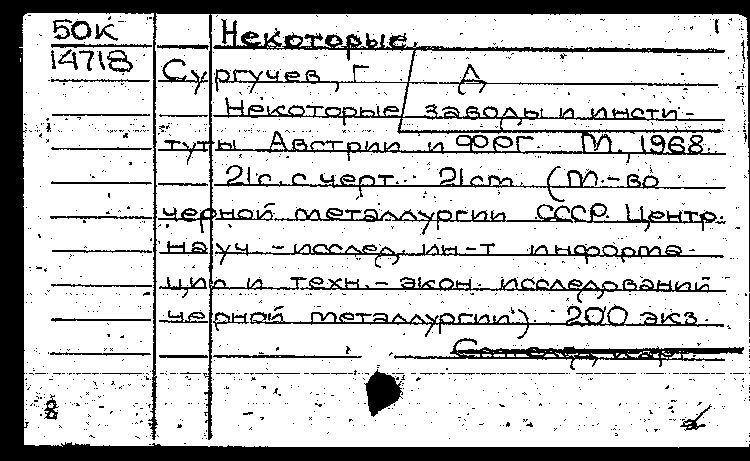 50К Некоторые
14718 Сургучев, Г Д
Некоторые заводы и инсти-
туты Австрии и ФРГ. М., 1968.
21с. с черт. 21cm. (М-во
черной металлургии СССР. Центр.
науч-исслед. ин-т информа-
ции и техн.-экон. исследований
черной металлургии) 200 экз.